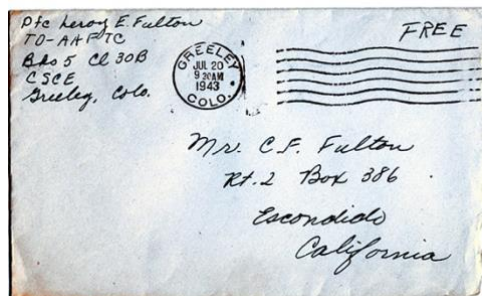 Pfc Leroy E. Fulton
TO-AAFTC
Bks 5 Cl 30B
CSCE
Greeley, Colo.
GREELEY
JUL 20
9 30AM
1943
COLO.
FREE
Mr. C.F. Fulton
Rt. 2 Box 386
Escondido
California